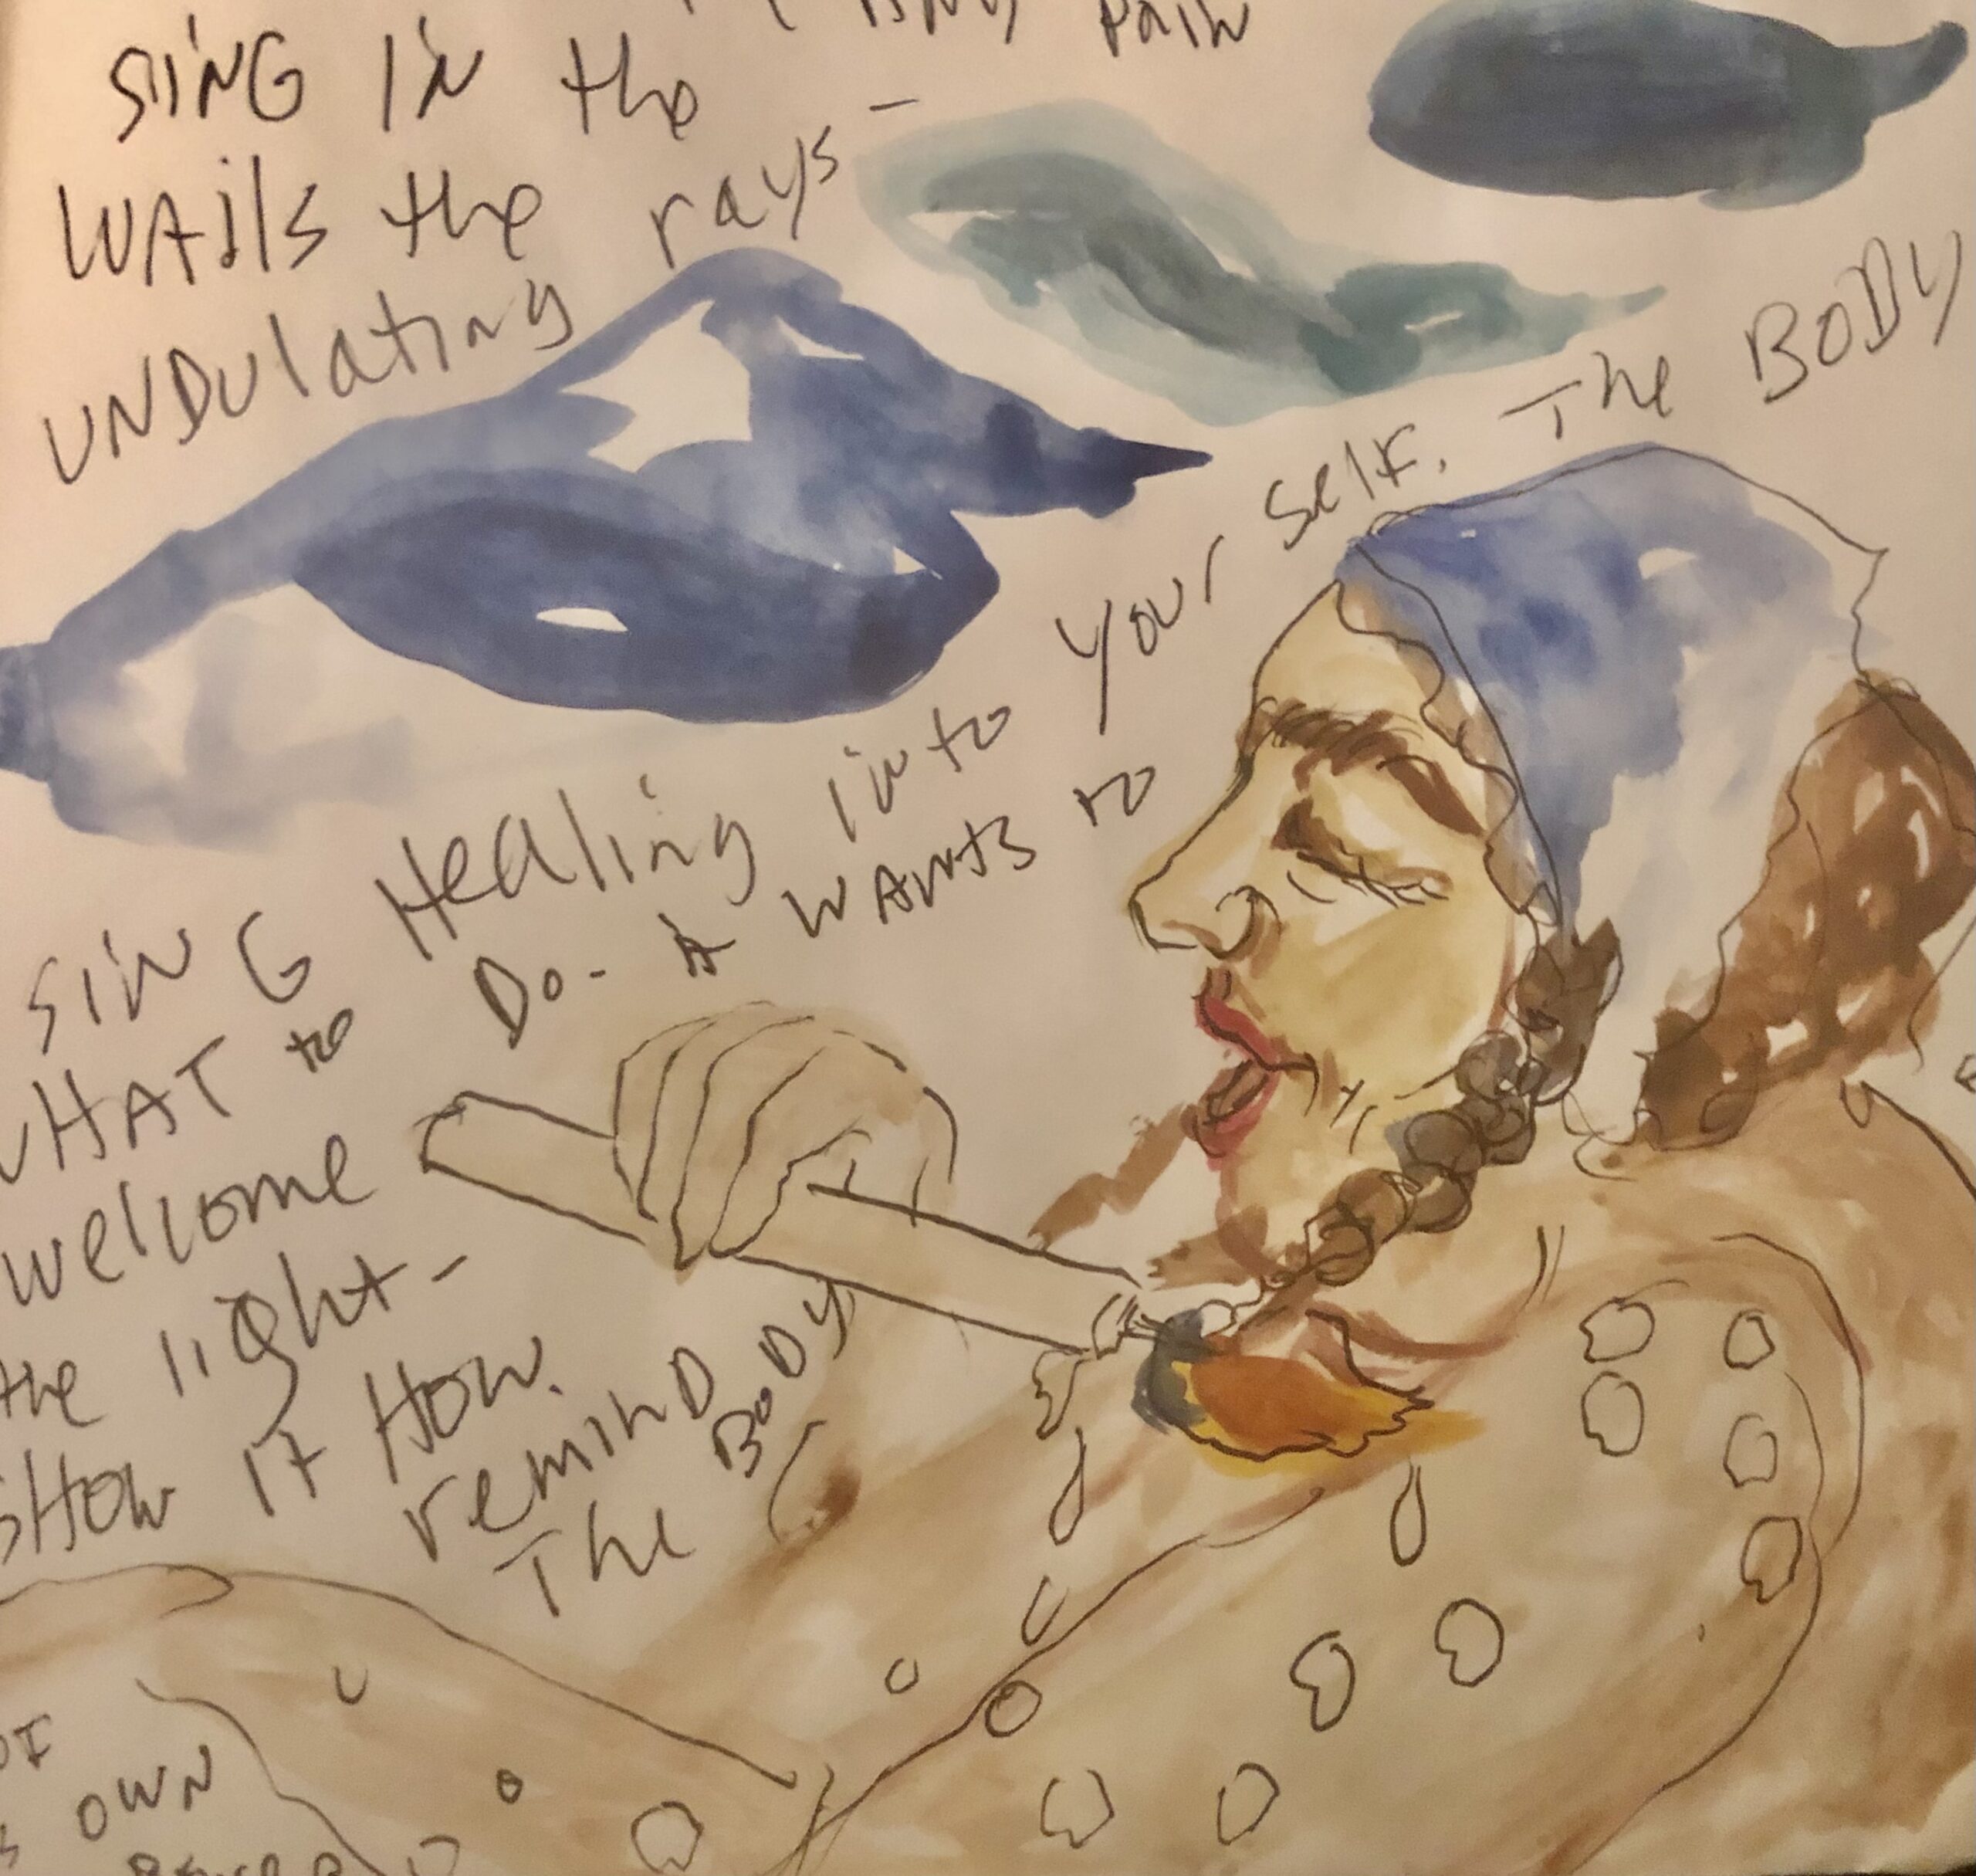 any pain
SING IN the
WAILS the
UNDulating rays -
SING Healing into your self. The BODY
WHAT to Do - it WANTS to
welcome
the light -
SHOW IT HOW.
remIND
The BODY
OF
OWN